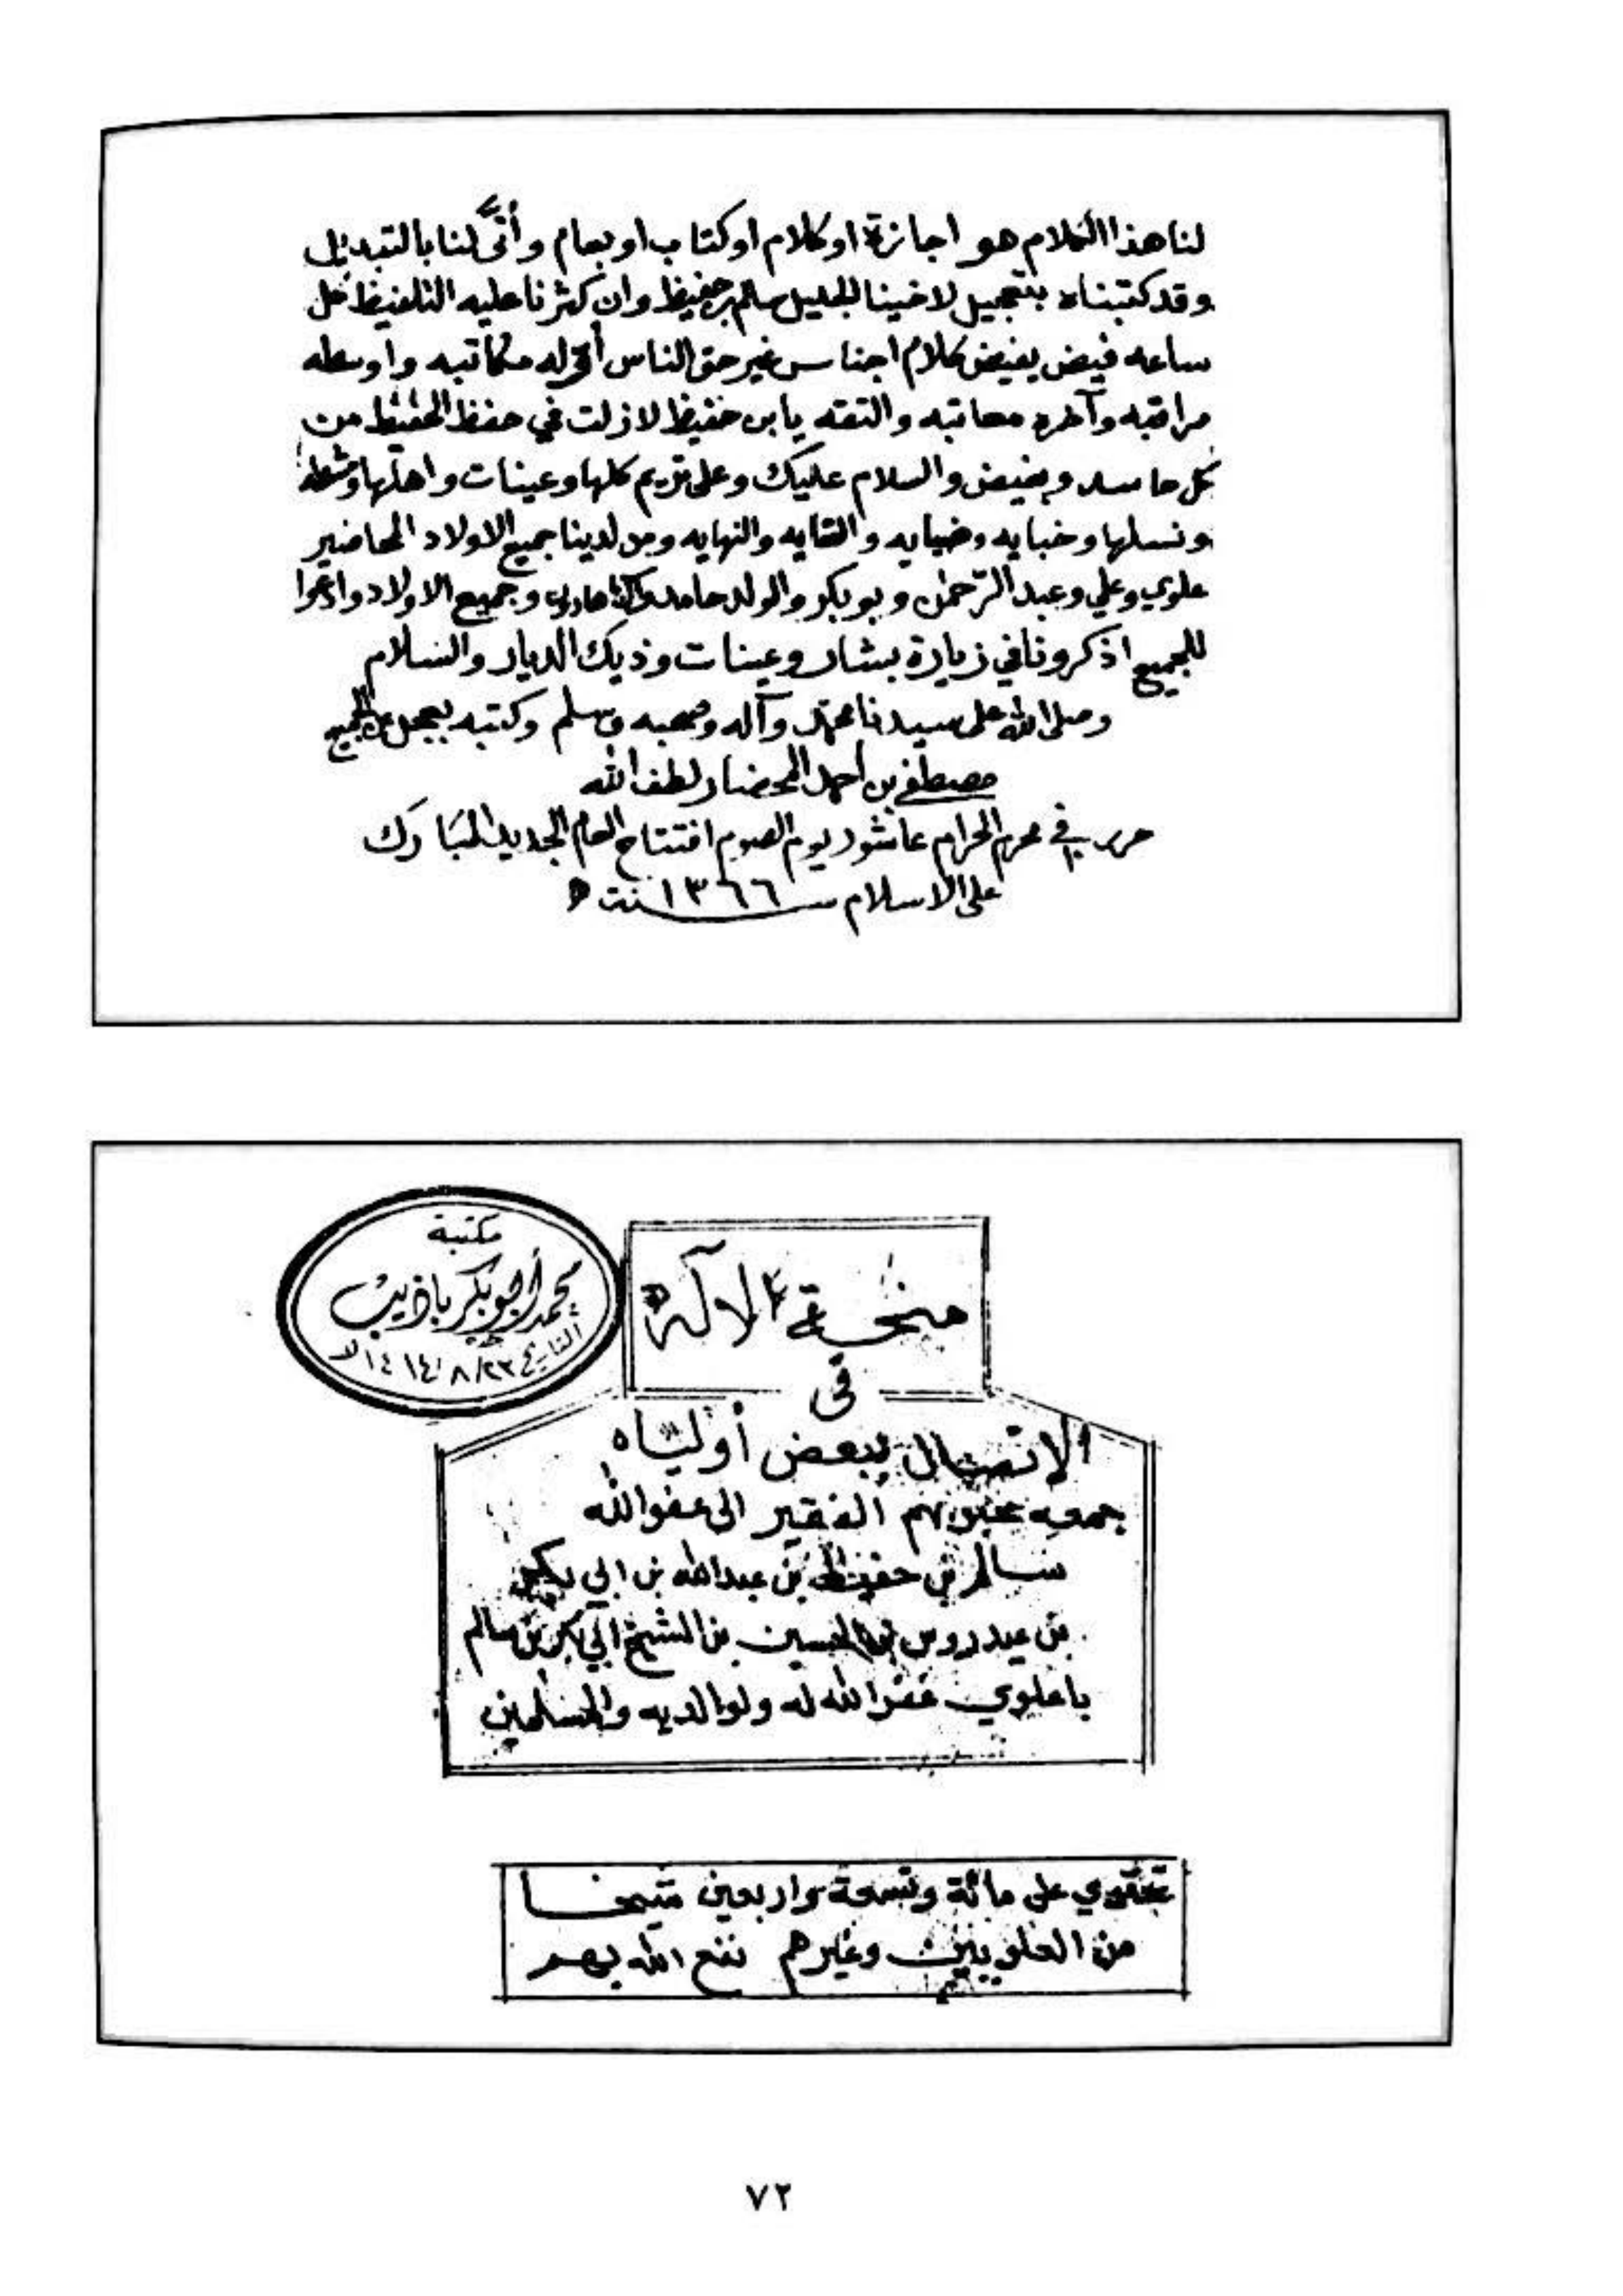 لنا هذا الكلام هو اجازة او كلام او كتاب او بعام وأنَّى لنا بالتبديل
وقد كتبناه بتعجيل لاخينا الجليل سالم بن حفيظ وان كثرنا عليه التلفيظ كل
ساعه فيض يفيض كلام اجناس غير حق الناس له مكاتبه واوسطه
مراقبه وآخره معاتبه والتقه يا بن حفيظ لازلت في حفظ الحفيظ من
كل حاسد وبغيض والسلام عليك وعلى تريم كلها وعينات واهلها
ونسلها وخبايه وضيايه والنهايه ومن لدينا جميع الاولاد المحاضير
علوي وعلي وعبد الرّحمٰن وبوبكر والولد حامد وجميع الاولاد وادعوا
للجميع اذكرونا في زيارة بشار وعينات وذيك الديار والسلام
وصلى الله على سيدنا محمّد وآله وصحبه وسلم وكتبه بعجل عن الجميع
مصطفى بن احمد المحضار لطف الله
حرر في ١٠ محرم الحرام عاشور يوم الصوم افتتاح العام الجديد المبارك
على الاسلام سنة ١٣٦٦ ه
مكتبة
محمد أبو بكر باذيب
التاريخ ٢٣/٨/١٤١٤ لا
منحة الآله
في
الاتصال ببعض أولياه
جمعه الفقير الى عفو الله
سالم بن حفيظ بن عبدالله بن ابي بكر
بن عيدروس بن الحسين بن الشيخ ابي بكر بن سالم
باعلوي غفر الله له ولوالديه والمسلمين
تحتوي على مائة وتسعة واربعين شيخا
من العلويين وغيرهم نفع الله بهم
٧٢